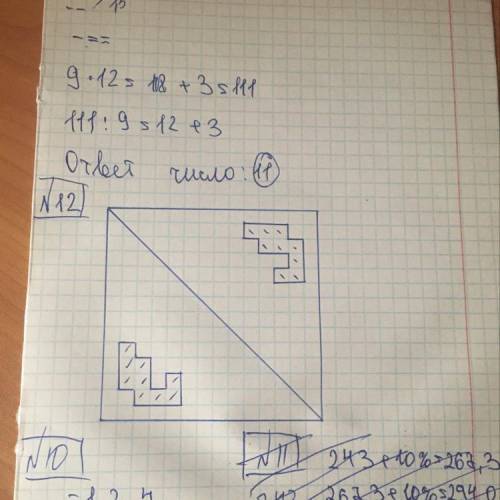 9·12=108+3=111
111:9=12+3
Ответ число: 11
№12
№10
№11 243+10%=267,3
267,3+10%=294,0